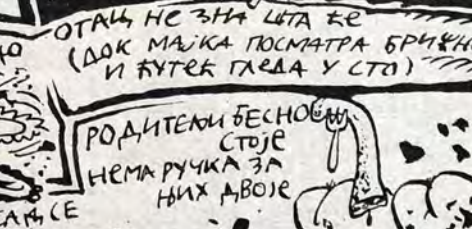 ОТАЦ НЕ ЗНА ШТА ЋЕ
(ДОК МАЈКА ПОСМАТРА
И ЋУТЕЋ ГЛЕДА У СТО)
РОДИТЕЉИ БЕСНО
СТОЈЕ
НЕМА РУЧКА ЗА
ЊИХ ДВОЈЕ